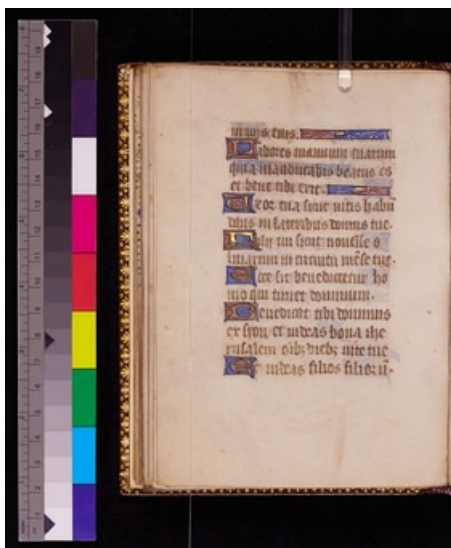 in viis eius.
Labores manuum tuarum
quia manducabis beatus es
et bene tibi erit.
Uxor tua sicut vitis habū
dans in lateribus domus tue.
Filii tui sicut novelle o
livarum in circuitu mēse tue.
Ecce sic benedicetur ho
mo qui timet dominum.
Benedicat tibi dominus
ex syon et videas bona ihe
rusalem oībꝫ diebꝫ vite tue
Et videas filios filiorū.